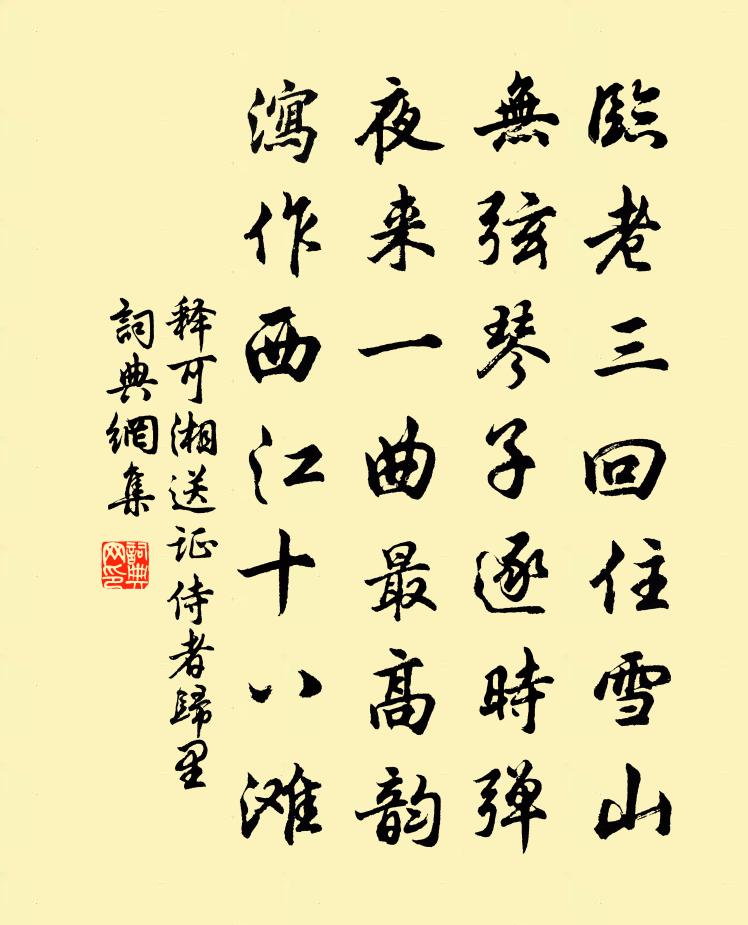 臨老三回住雪山
無弦琴子逐時弹
夜来一曲最高韵
瀉作西江十八滩
释可湘送证侍者歸里
詞典網集
詞典网印